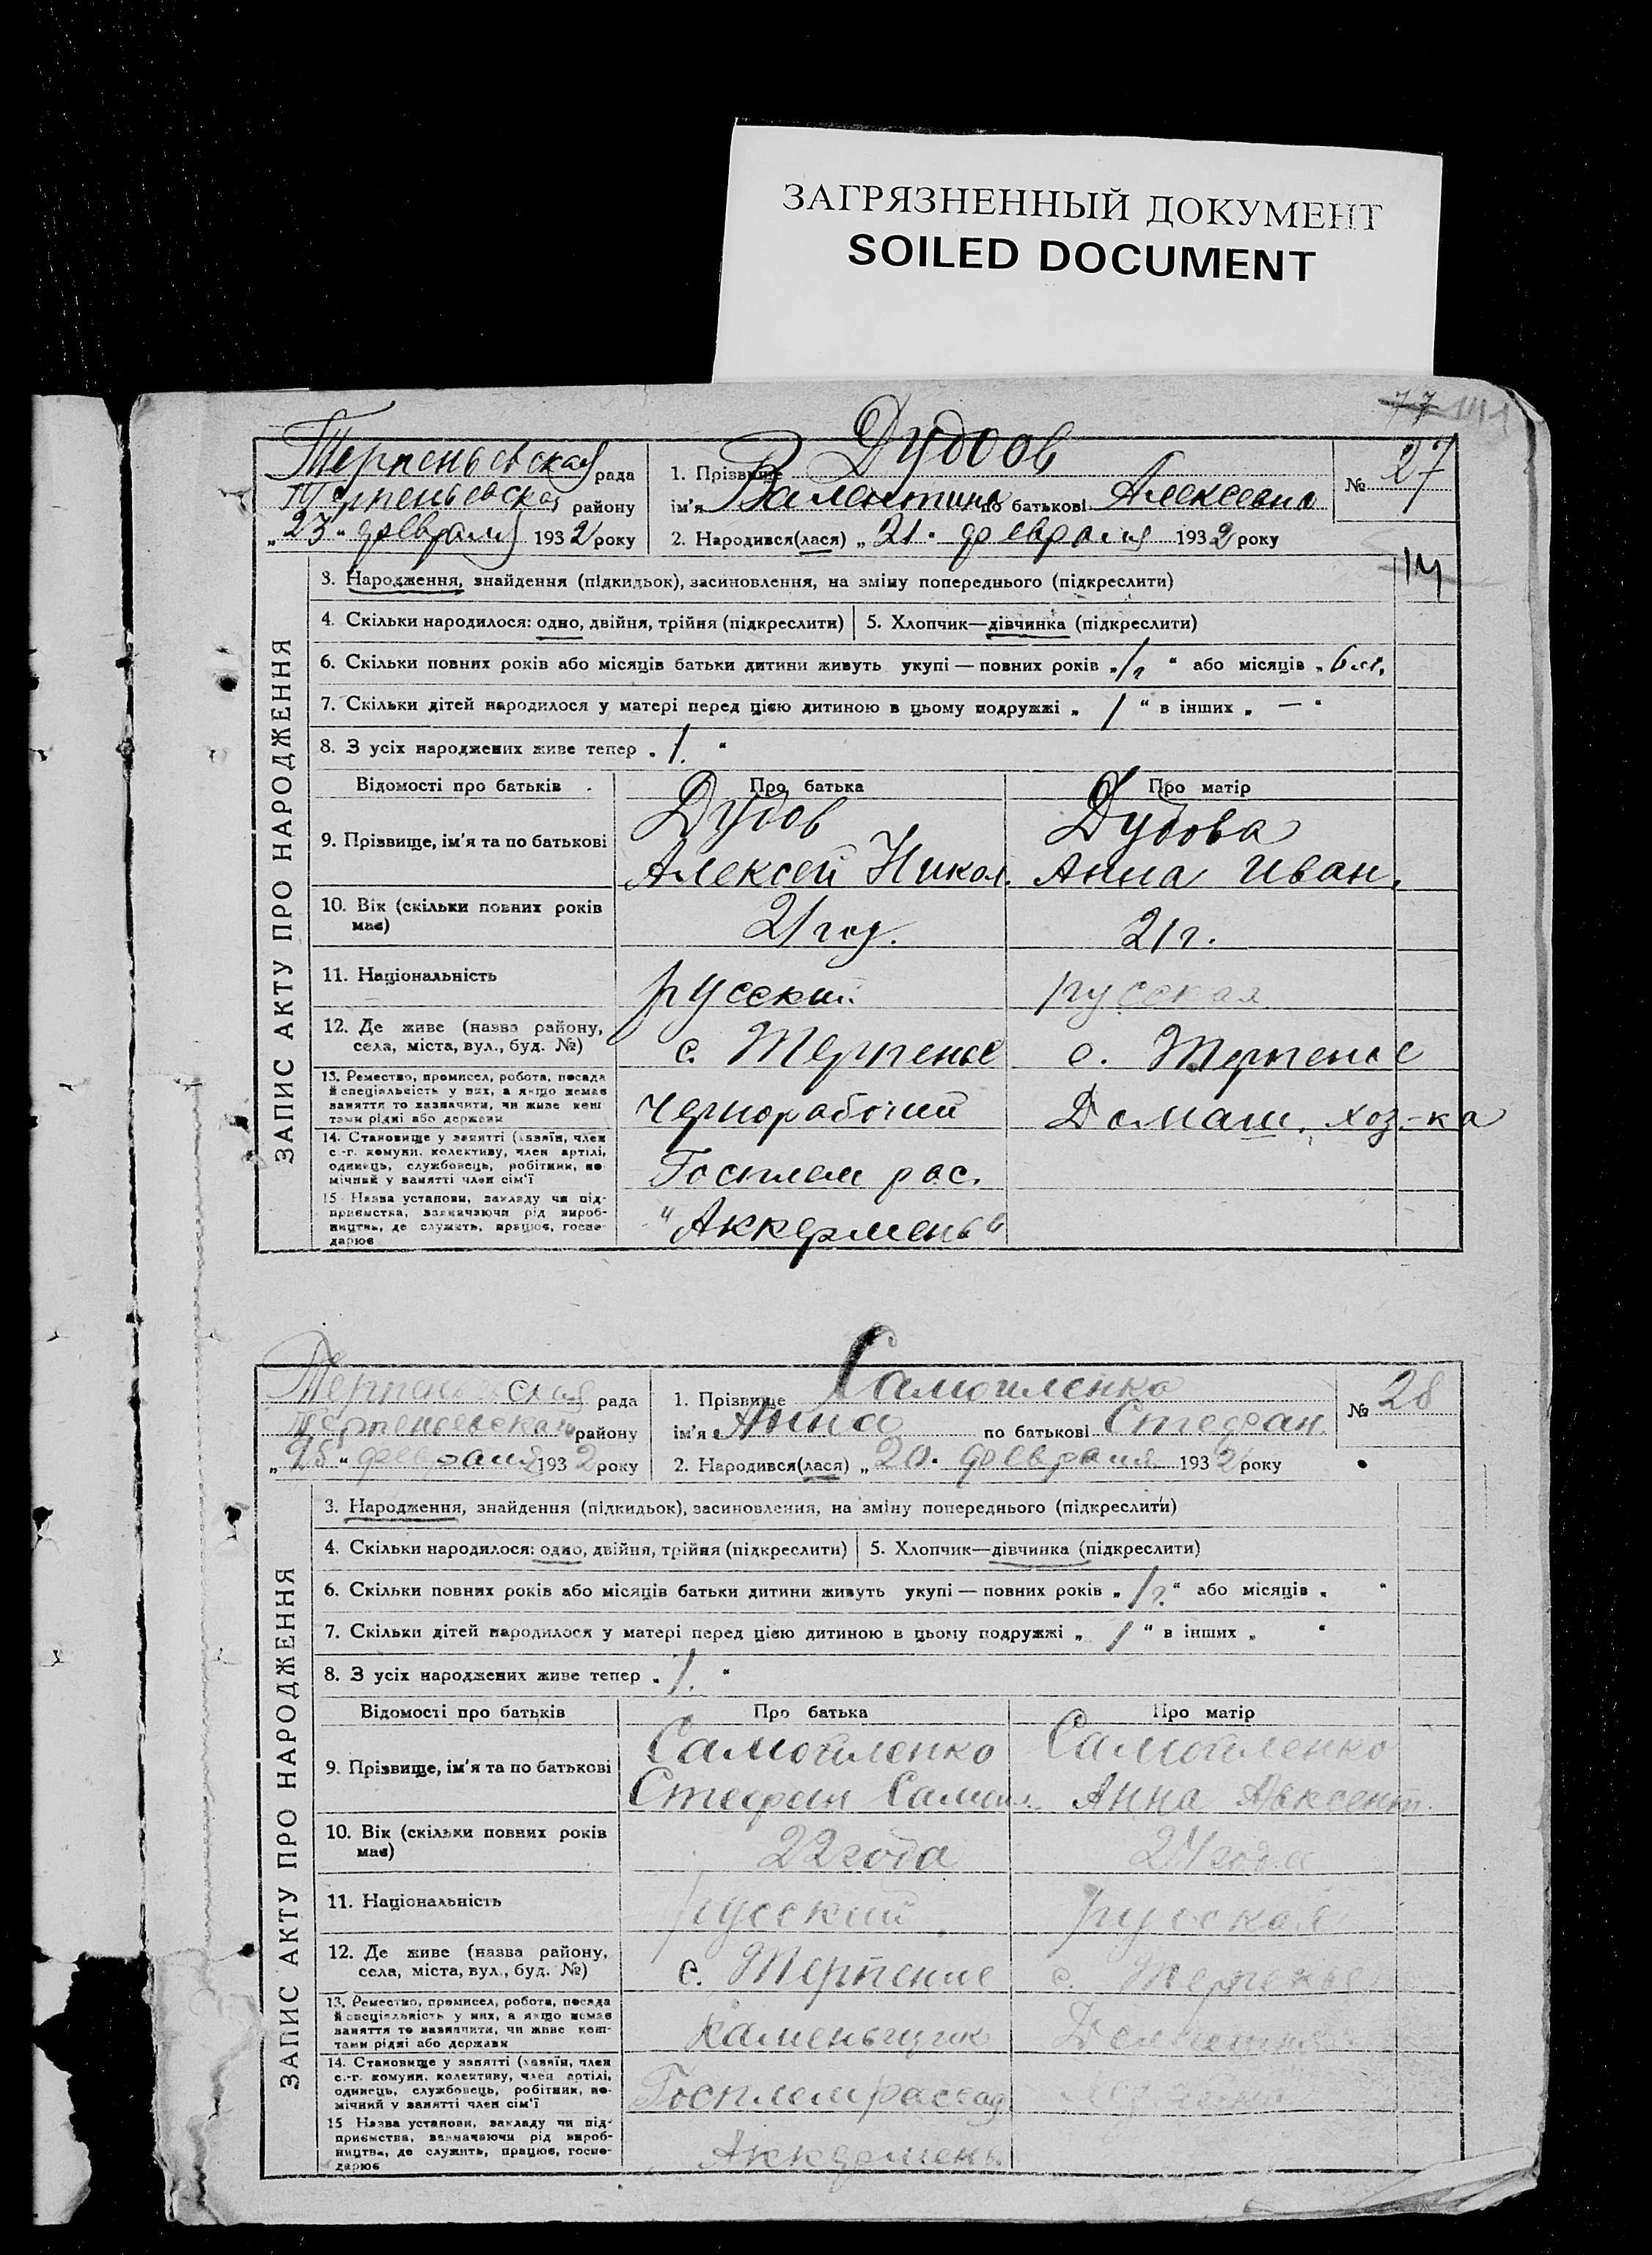 ЗАГРЯЗНЕННЫЙ ДОКУМЕНТ
SOILED DOCUMENT
77 141
Терпеньевская рада
Терпеньевская району
„23“ февраля 1932 року
1. Прізвище Дубов
ім'я Валентина по батькові Алексеевна
2. Народився(лася) „21. февраля 1932 року
№ 27
14
ЗАПИС АКТУ ПРО НАРОДЖЕННЯ
3. Народження, знайдення (підкидьок), засиновлення, на зміну попереднього (підкреслити)
4. Скільки народилося: одно, двійня, трійня (підкреслити) 5. Хлопчик—дівчинка (підкреслити)
6. Скільки повних років або місяців батьки дитини живуть укупі — повних років „1 г“ або місяців „6 м.
7. Скільки дітей народилося у матері перед цією дитиною в цьому подружжі „1“ в інших „—“
8. З усіх народжених живе тепер „1.“
Відомості про батьків Про батька Про матір
9. Прізвище, ім'я та по батькові
Дубов Дубова
Алексей Никол. Анна Иван.
10. Вік (скільки повних років має) 21 год. 21 г.
11. Національність русский русская
12. Де живе (назва району, села, міста, вул., буд. №) с. Терпенье с. Терпенье
13. Ремество, промисел, робота, посада й спеціяльність у них, а якщо немає заняття то зазначити, чи живе коштами рідні або держави
чернорабочий Домаш. хоз-ка
14. Становище у занятті (хазяїн, член с.-г. комуни, колективу, член артілі, одинець, службовець, робітник, помічний у занятті член сім'ї
Госплем рас.
15 Назва установи, закладу чи підприємства, зазначаючи рід виробництва, де служить, працює, господарює
"Аккермень"
Терпеньевская рада
Терпеньевская району
„25“ февраля 1932 року
1. Прізвище Самойленко
ім'я Анна по батькові Стефан.
2. Народився(лася) „20. февраля 1932 року
№ 28
ЗАПИС АКТУ ПРО НАРОДЖЕННЯ
3. Народження, знайдення (підкидьок), засиновлення, на зміну попереднього (підкреслити)
4. Скільки народилося: одно, двійня, трійня (підкреслити) 5. Хлопчик—дівчинка (підкреслити)
6. Скільки повних років або місяців батьки дитини живуть укупі — повних років „1 г.“ або місяців „ “
7. Скільки дітей народилося у матері перед цією дитиною в цьому подружжі „1“ в інших „ “
8. З усіх народжених живе тепер „1.“
Відомості про батьків Про батька Про матір
9. Прізвище, ім'я та по батькові
Самойленко Самойленко
Стефан Самой. Анна Авксент.
10. Вік (скільки повних років має) 22 года 24 года
11. Національність русский русская
12. Де живе (назва району, села, міста, вул., буд. №) с. Терпение с. Терпенье
13. Ремество, промисел, робота, посада й спеціяльність у них, а якщо немає заняття то зазначити, чи живе коштами рідні або держави
Каменьщик
14. Становище у занятті (хазяїн, член с.-г. комуни, колективу, член артілі, одинець, службовець, робітник, помічний у занятті член сім'ї
Госплемрассад
15 Назва установи, закладу чи підприємства, зазначаючи рід виробництва, де служить, працює, господарює
Аккермень